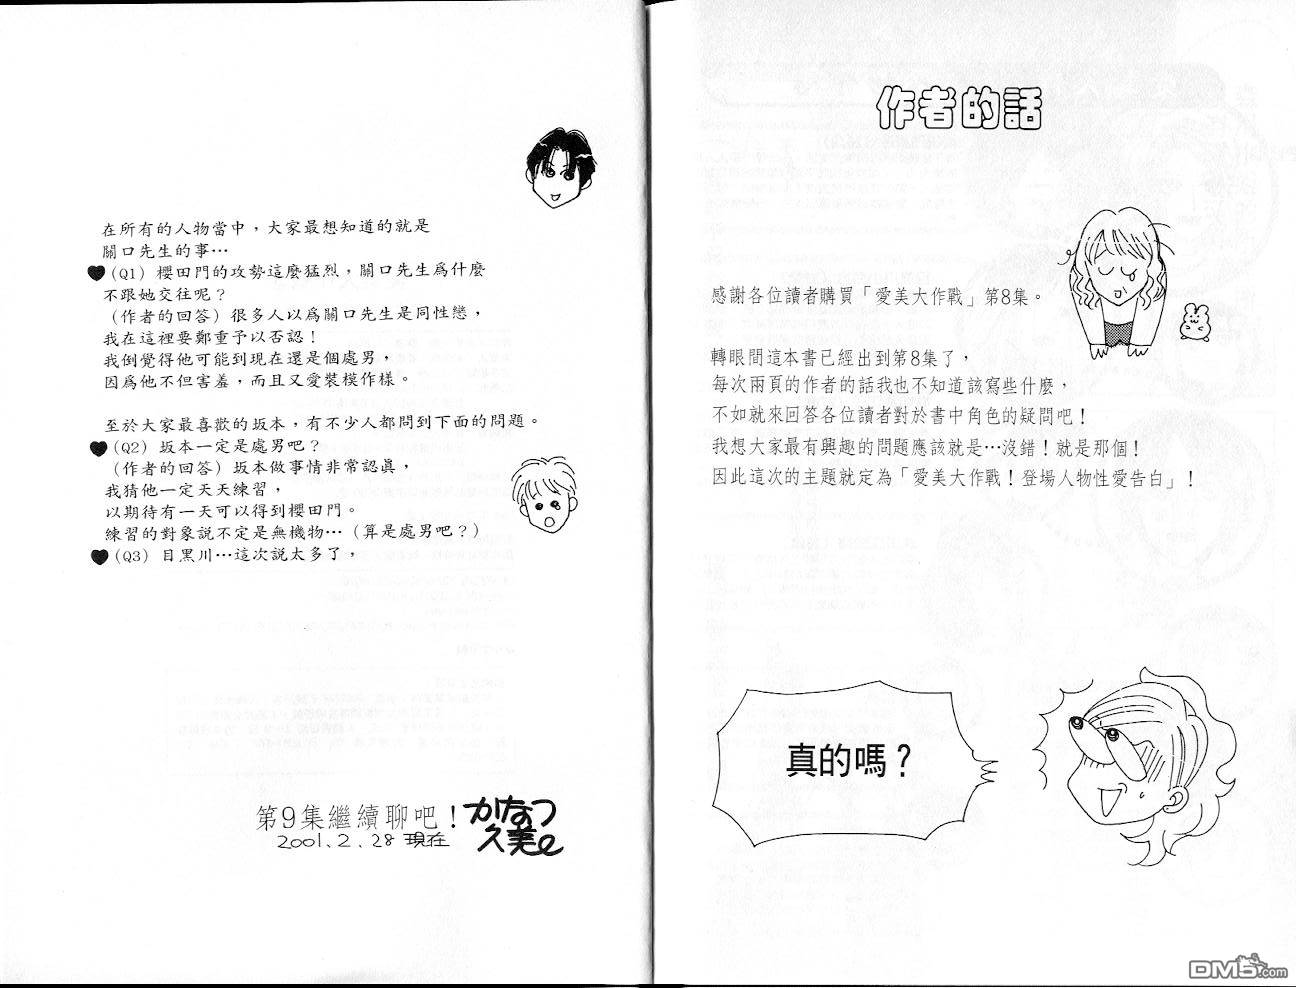 作者的話
感謝各位讀者購買「愛美大作戰」第8集。
轉眼間這本書已經出到第8集了，
每次兩頁的作者的話我也不知道該寫些什麼，
不如就來回答各位讀者對於書中角色的疑問吧！
我想大家最有興趣的問題應該就是…沒錯！就是那個！
因此這次的主題就定為「愛美大作戰！登場人物性愛告白」！
真的嗎？
在所有的人物當中，大家最想知道的就是
關口先生的事…
（Q1）櫻田門的攻勢這麼猛烈，關口先生爲什麼
不跟她交往呢？
（作者的回答）很多人以爲關口先生是同性戀，
我在這裡要鄭重予以否認！
我倒覺得他可能到現在還是個處男，
因爲他不但害羞，而且又愛裝模作樣。
至於大家最喜歡的坂本，有不少人都問到下面的問題。
（Q2）坂本一定是處男吧？
（作者的回答）坂本做事情非常認眞，
我猜他一定天天練習，
以期待有一天可以得到櫻田門。
練習的對象說不定是無機物…（算是處男吧？）
（Q3）目黑川…這次說太多了，
第9集繼續聊吧！
かなつ
久美
2001.2.28 現在
DM5.com